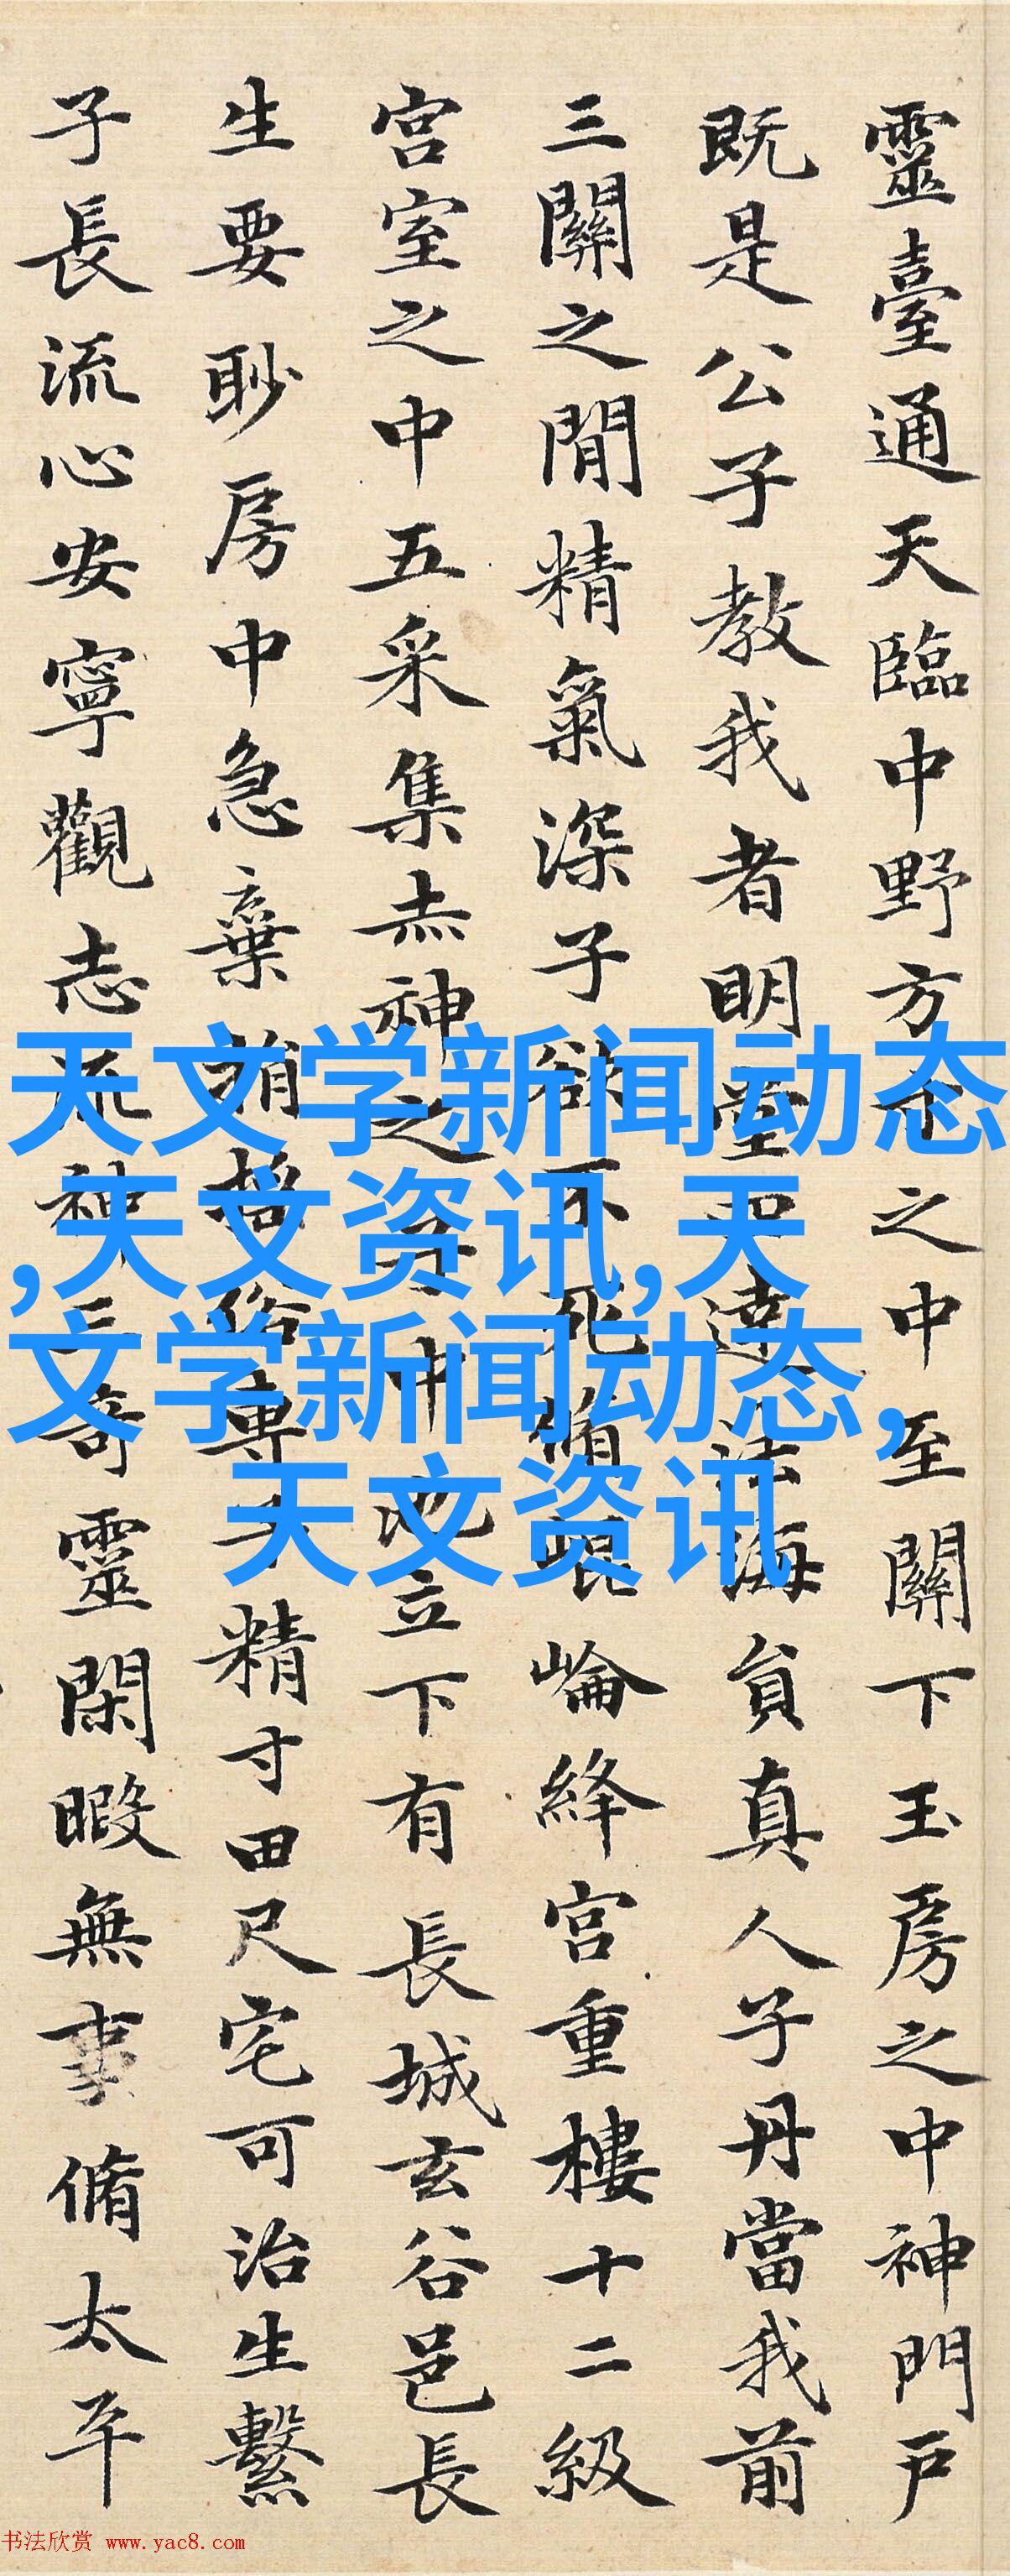 靈臺通天臨中野方寸之中至關下玉房之中神門戶
既是公子教我者明堂四達法海員真人子丹當我前
三關之閒精氣深子欲不死脩崐崘絳宮重樓十二級
宮室之中五采集赤神之子中池立下有長城玄谷邑長
生要眇房中急棄捐搖俗專子精寸田尺宅可治生繫
子長流心安寧觀志流神三奇靈閑暇無事脩太平
天文学新闻动态
,天文资讯,天
文学新闻动态,
天文资讯
书法欣赏 www.yac8.com